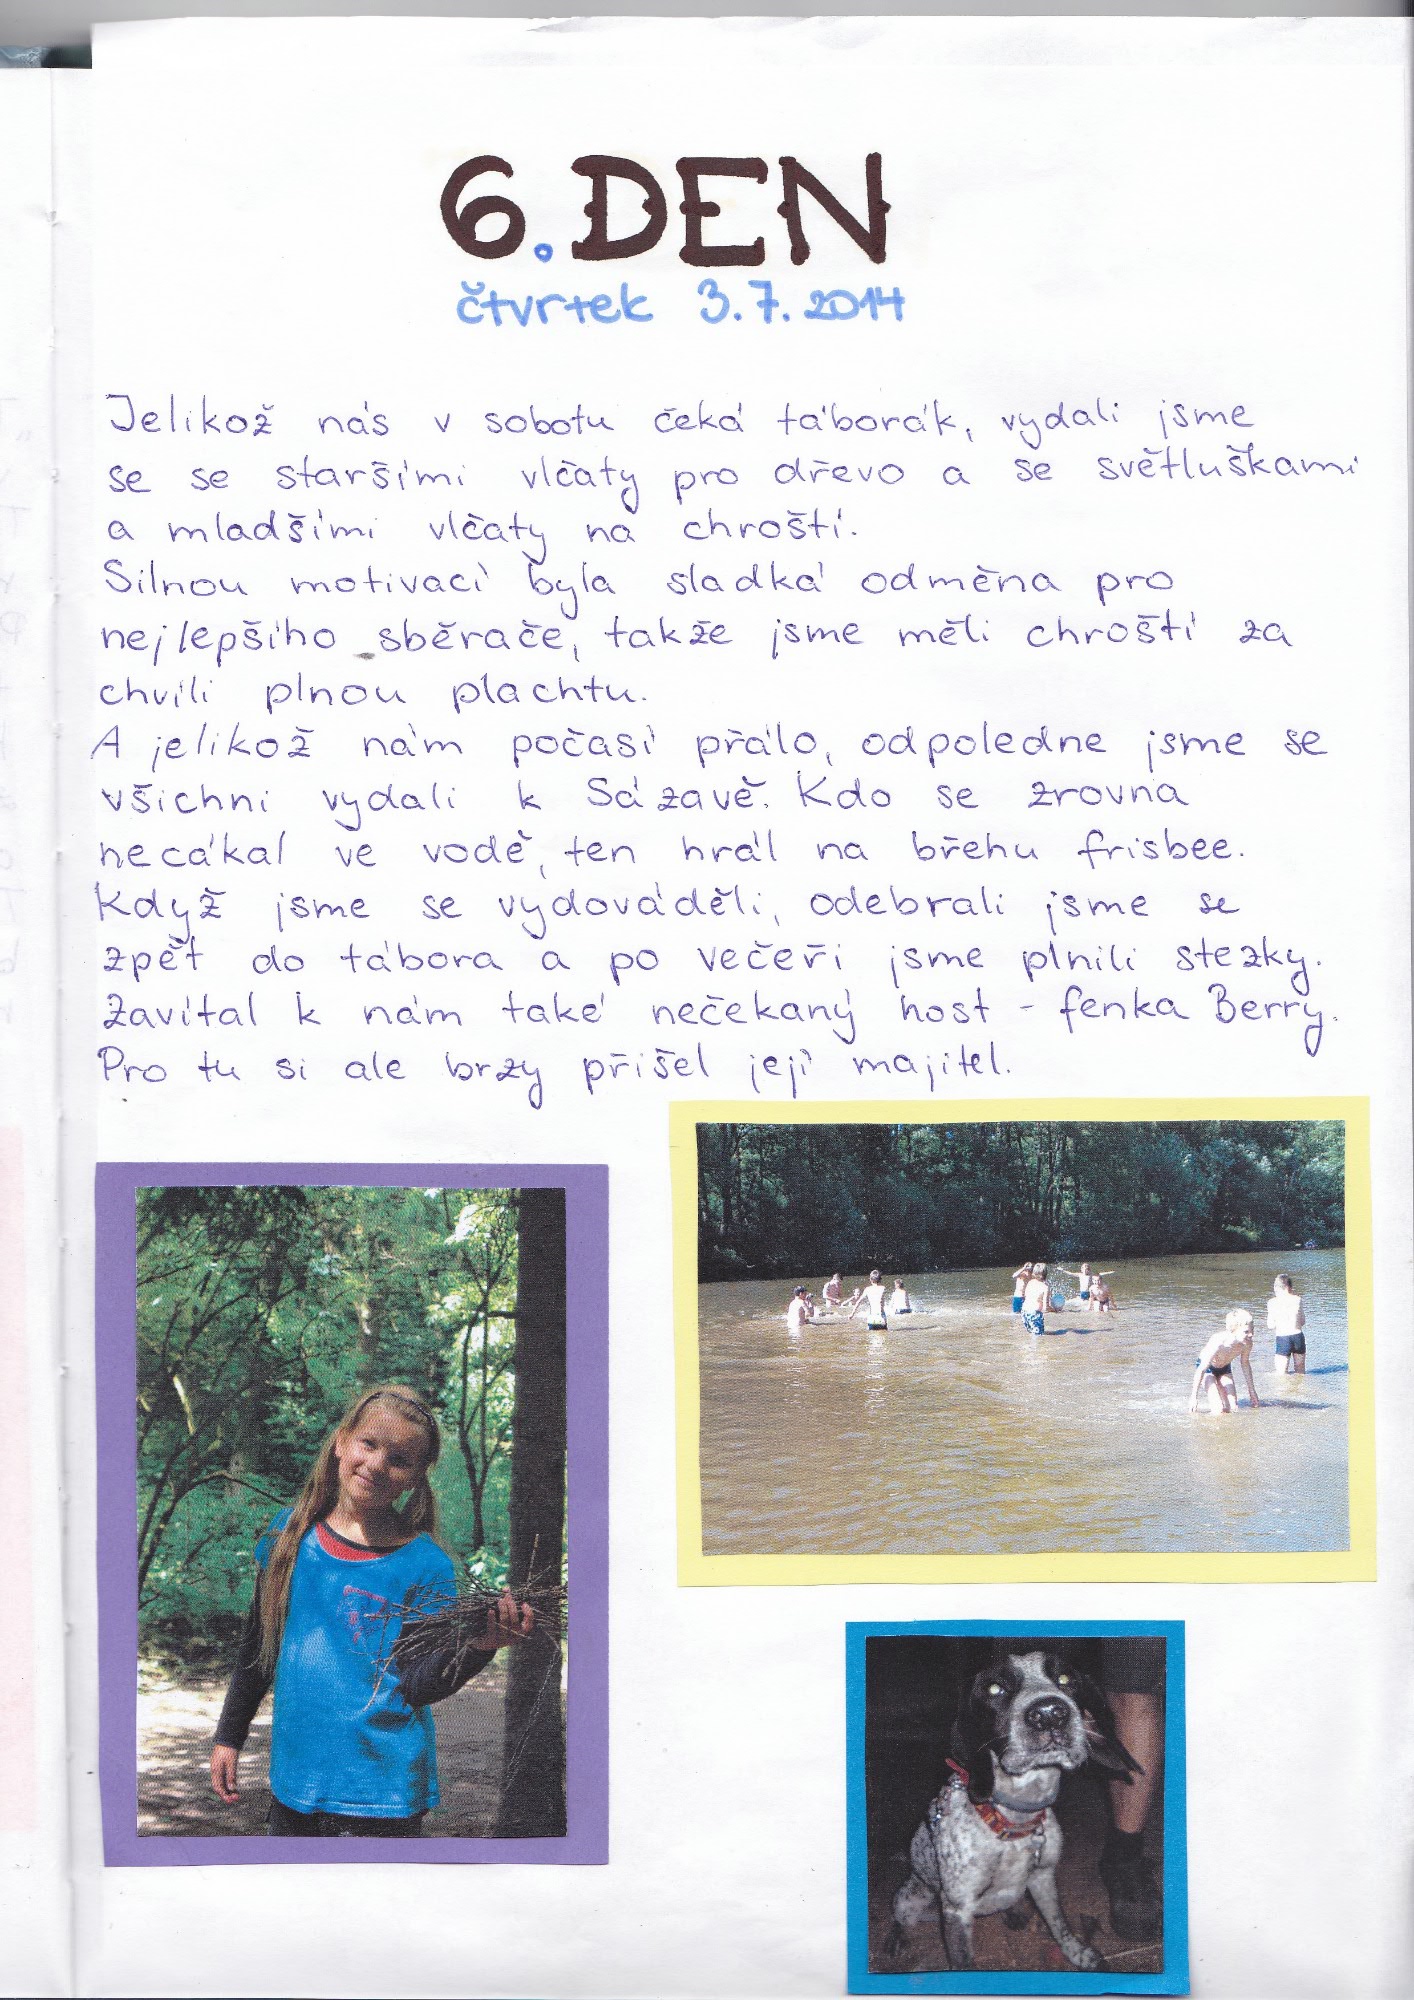 6.DEN
čtvrtek 3.7.2014
Jelikož nás v sobotu čeká táborák, vydali jsme
se se staršími vlčaty pro dřevo a se světluškami
a mladšími vlčaty na chroští.
Silnou motivací byla sladká odměna pro
nejlepšího sběrače, takže jsme měli chroští za
chvíli plnou plachtu.
A jelikož nám počasí přálo, odpoledne jsme se
všichni vydali k Sázavě. Kdo se zrovna
necákal ve vodě, ten hrál na břehu frisbee.
Když jsme se vydováděli, odebrali jsme se
zpět do tábora a po večeři jsme plnili stezky.
Zavítal k nám také nečekaný host - fenka Berry.
Pro tu si ale brzy přišel její majitel.